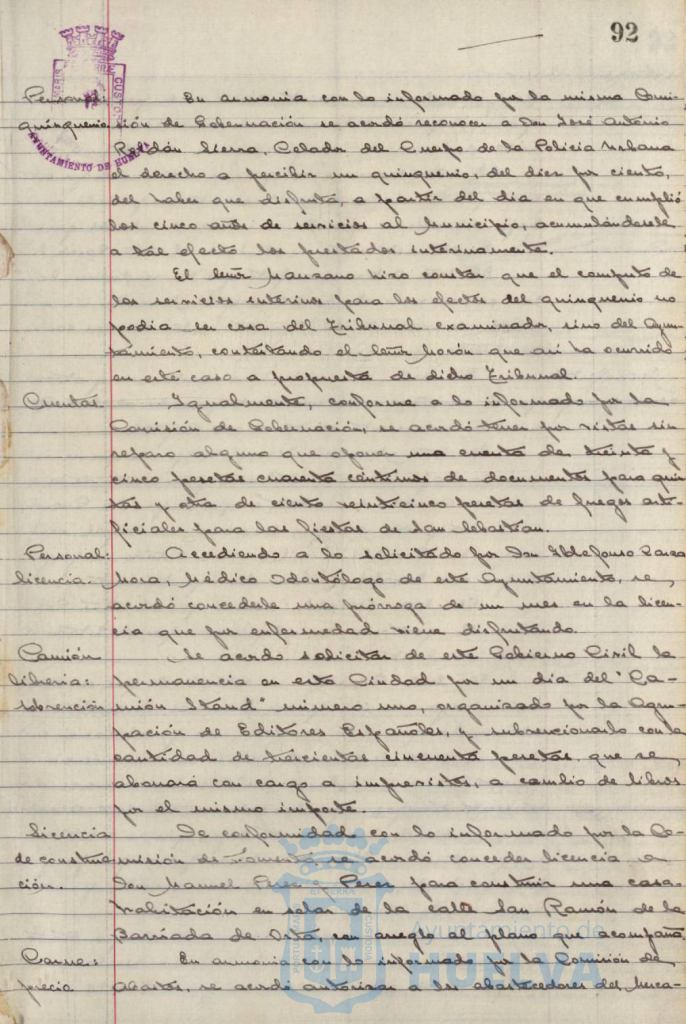 92
Personal:
quinquenio
En armonia con lo informado por la misma Comi-
sión de Gobernación se acordó reconocer a Don José Antonio
Roldón Sierra, Celador del Cuerpo de la Policia Urbana
el derecho a percibir un quinquenio, del diez por ciento,
del haber que disfruta, a partir del dia en que cumplió
los cinco años de servicios al Municipio, acumulándosele
a tal efecto los prestados interinamente.
El señor Manzano hizo constar que el computo de
los servicios interinos para los efectos del quinquenio no
podia ser cosa del Tribunal examinador, sino del Ayun-
tamiento, contestando el señor Morón que asi ha ocurrido
en este caso a propuesta de dicho Tribunal.
Cuentas
Igualmente, conforme a lo informado por la
Comisión de Gobernación, se acordó tener por vistas sin
reparo alguno que oponer una cuenta de treinta y
cinco pesetas cuarenta céntimos de documentos para quin-
tas y otra de ciento veinticinco pesetas de fuegos arti-
ficiales para las fiestas de San Sebastian.
Personal:
licencia.
Accediendo a lo solicitado por Don Ildefonso
Mora, Médico Odontólogo de este Ayuntamiento, se
acordó concederle una prórroga de un mes en la licen-
cia que por enfermedad viene disfrutando.
Camión
libreria:
subvención
Se acordo solicitar de este Gobierno Civil la
permanencia en esta Ciudad por un dia del "Ca-
mión Stand" número uno, organizado por la Agru-
pación de Editores Españoles, y subvencionarlo con la
cantidad de trescientas cincuenta pesetas que se
abonará con cargo a imprevistos, a cambio de libros
por el mismo importe.
Licencia
de construc
ción.
De conformidad con lo informado por la Co-
misión de Fomento, se acordó conceder licencia a
Don Manuel Perez Perez para construir una casa
habitación en solar de la calle San Ramón de la
Barriada de Orta, con arreglo al plano que acompaña.
Carne:
precio
En armonia con lo informado por la Comisión de
Abastos, se acordó autorizar a los abastecedores del Merca-
AYUNTAMIENTO DE HUELVA
Ayuntamiento de
HUELVA